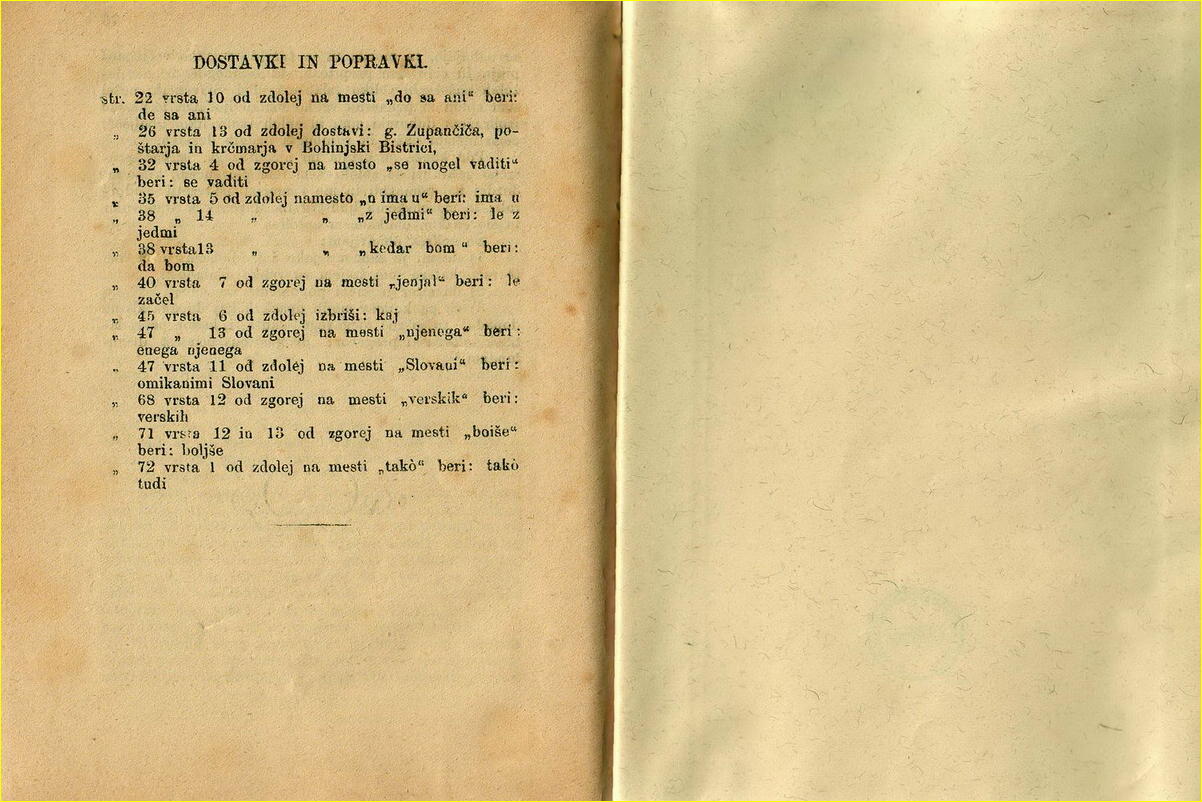 DOSTAVKI IN POPRAVKI.
str. 22 vrsta 10 od zdolej na mesti „do sa ani“ beri:
de sa ani
„ 26 vrsta 13 od zdolej dostavi: g. Zupančiča, po-
štarja in krčmarja v Bohinjski Bistrici,
„ 32 vrsta 4 od zgorej na mesto „se mogel vaditi“
beri: se vaditi
„ 35 vrsta 5 od zdolej namesto „n ima u“ beri: ima u
„ 38 „ 14 „ „ „z jedmi“ beri: le z
jedmi
„ 38 vrsta13 „ „ „kedar bom“ beri:
da bom
„ 40 vrsta 7 od zgorej na mesti „jenjal“ beri: le
začel
„ 45 vrsta 6 od zdolej izbriši: kaj
„ 47 „ 13 od zgorej na mesti „njenega“ beri:
enega njenega
„ 47 vrsta 11 od zdolej na mesti „Slovani“ beri:
omikanimi Slovani
„ 68 vrsta 12 od zgorej na mesti „verskik“ beri:
verskih
„ 71 vrsta 12 in 13 od zgorej na mesti „boiše“
beri: boljše
„ 72 vrsta 1 od zdolej na mesti „takò“ beri: takò
tudi